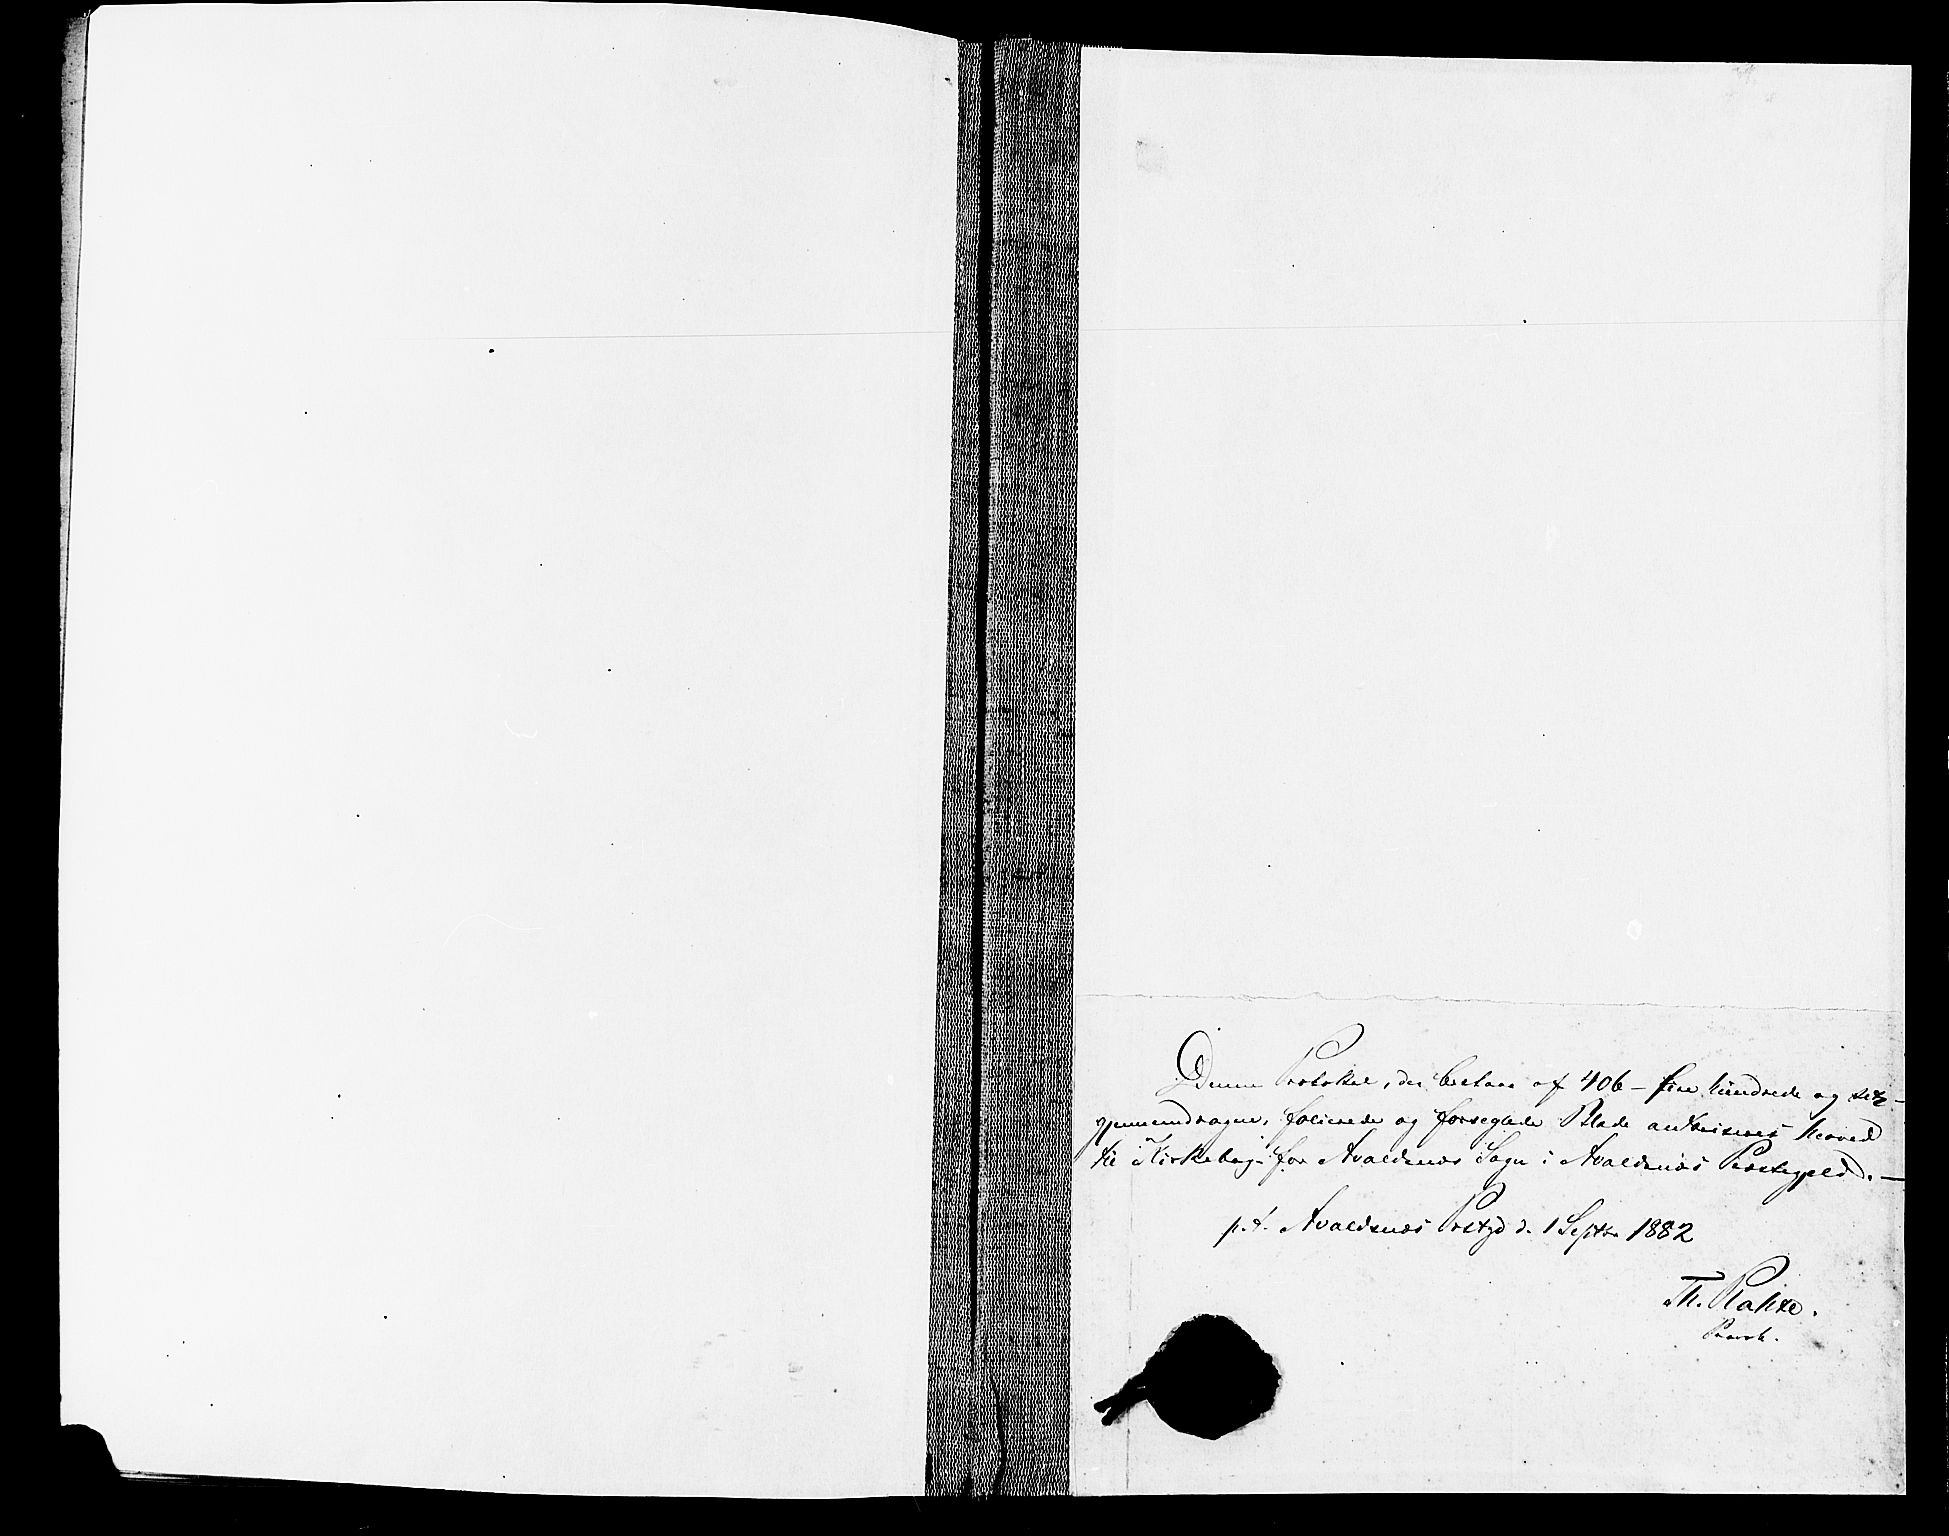 Denne Protokol, der bestaar af 406 – fire hundrede og sex –
gjennemdragne, folierede og forseglede Blade authoriseres herved
til Kirkebog for Avaldsnes Sogn i Avaldsnes Præstegjeld. –
p.t. Avaldsnes Prstgd d. 1 Septbr 1882
Th.
Provst.